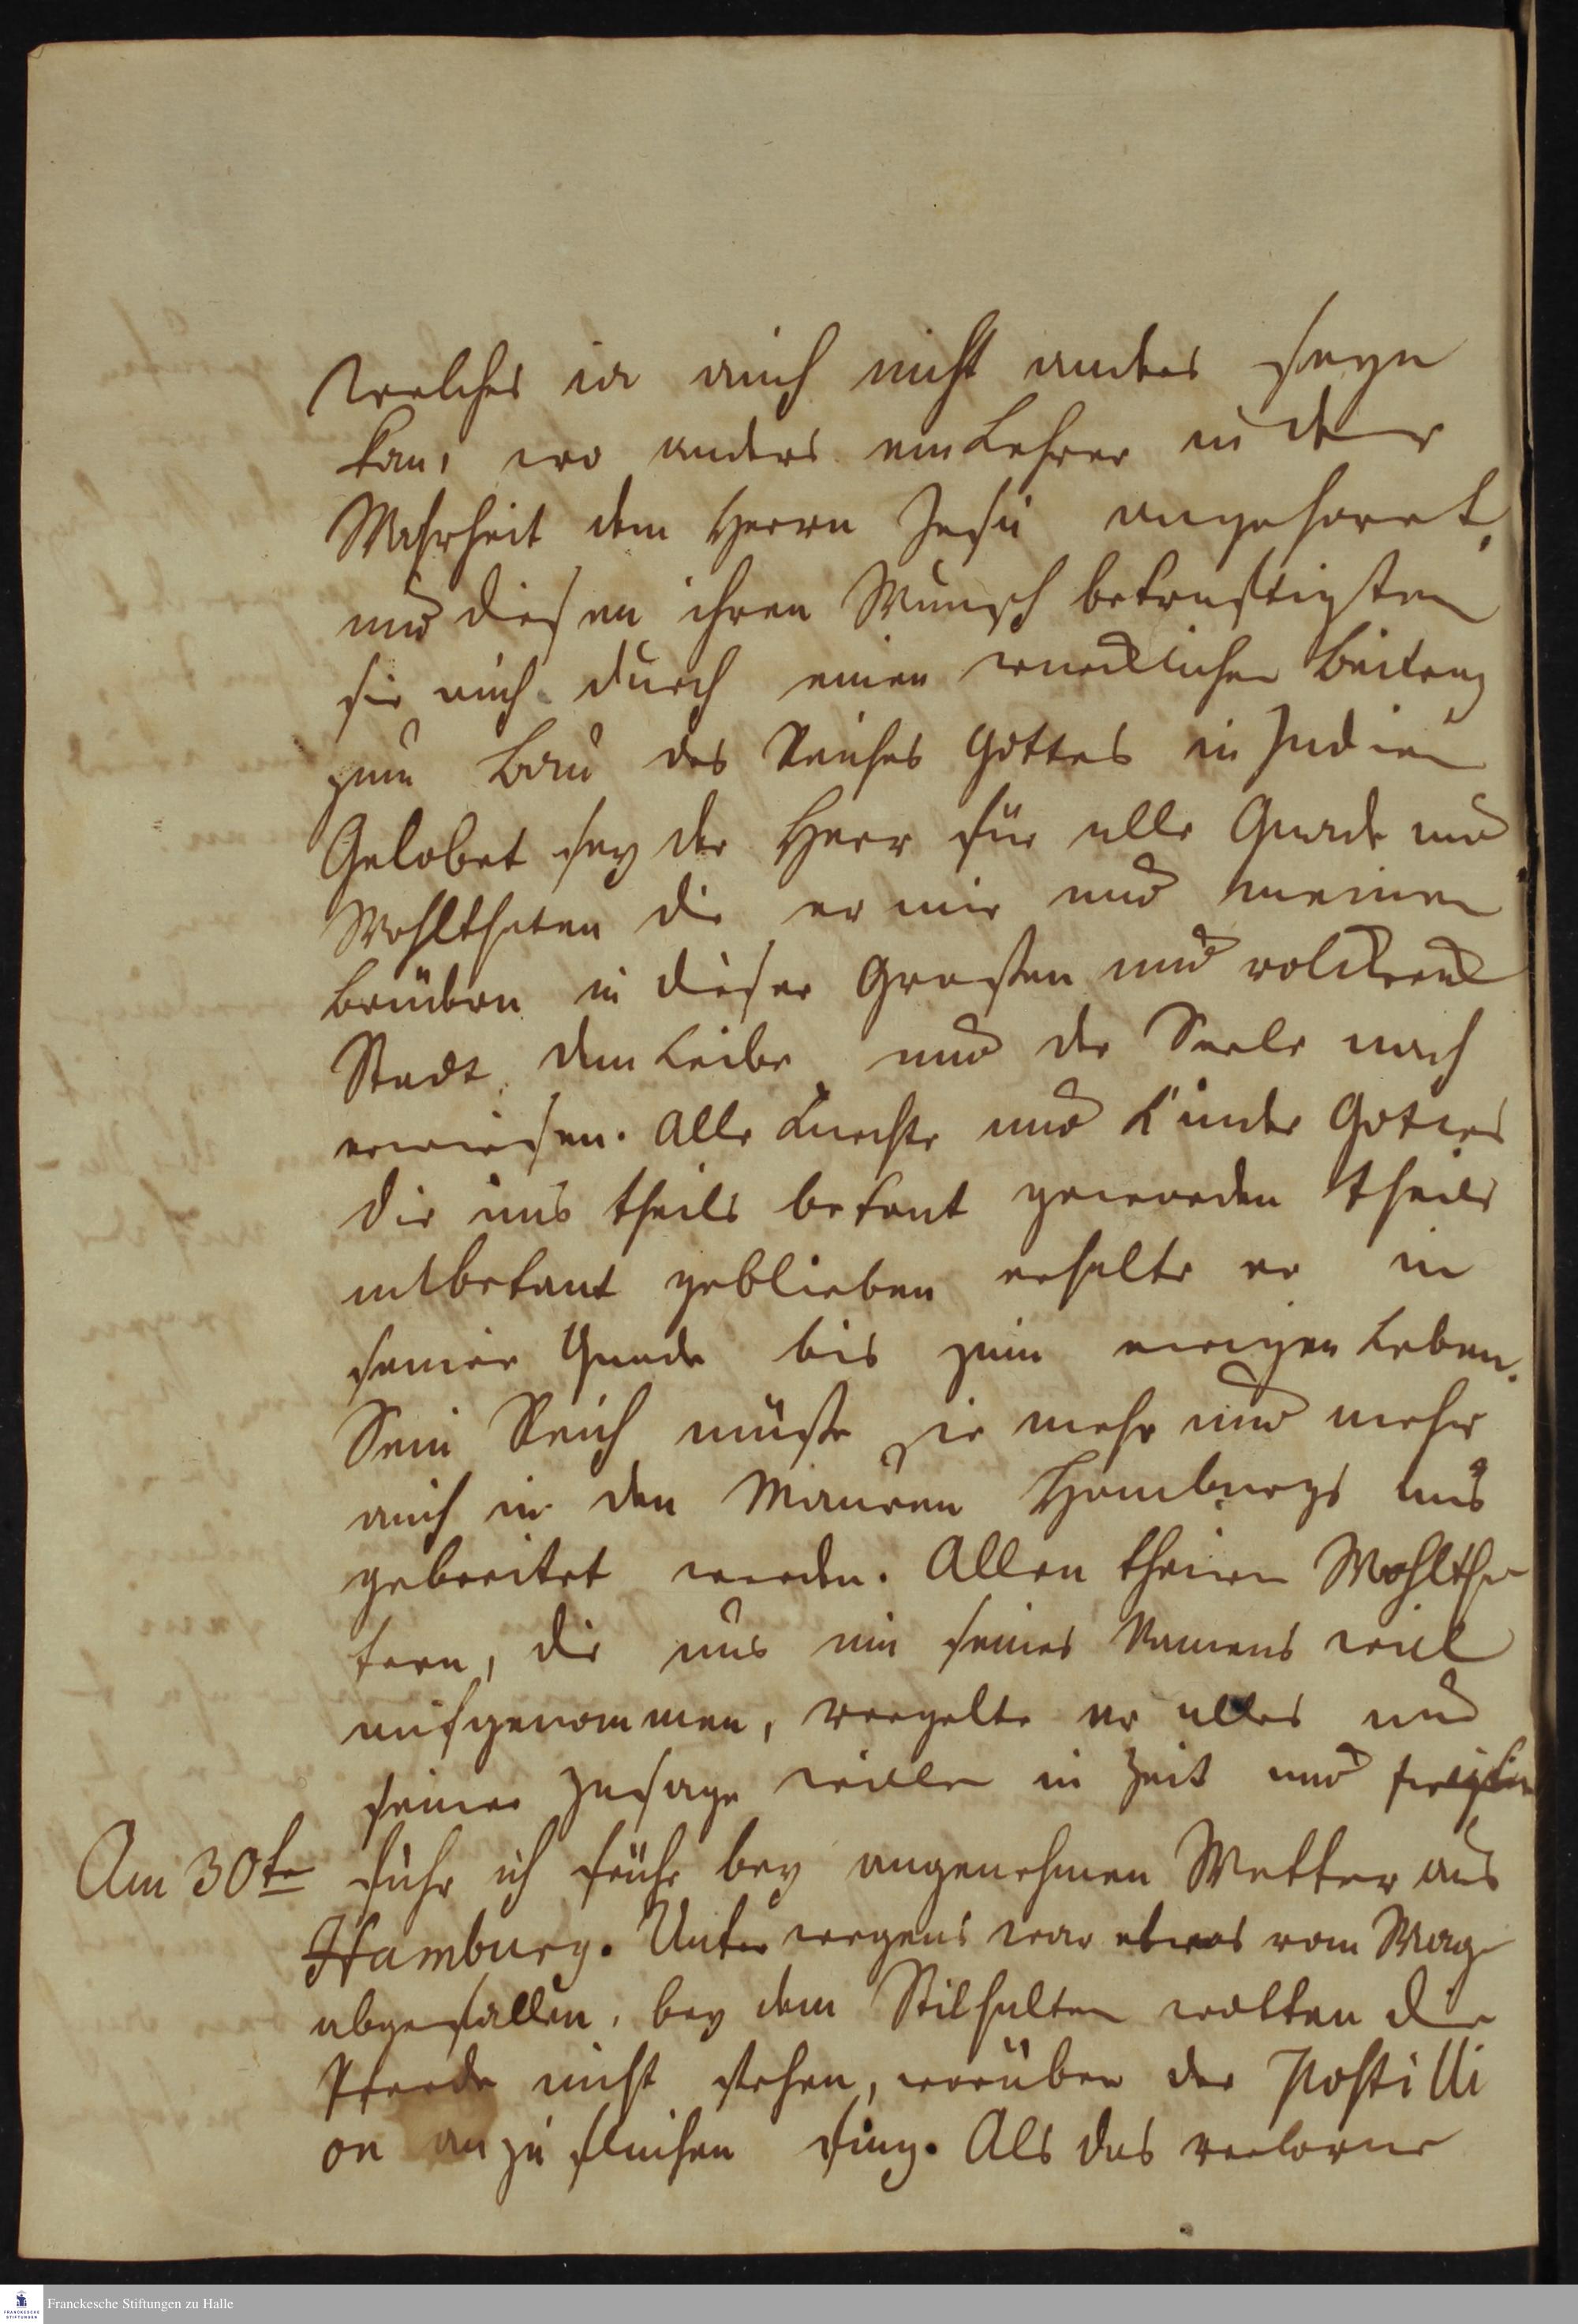 welches ia auch nicht anders seyn
kan, wo anders ein Lehrer in der
Wahrheit dem Herrn Jesu angehöret,
und diesen ihren Wunsch bekräftigten
sie auch durch einen Beitrag
zum Bau des Reiches Gottes in Indien
Gelobet sey der Herr für alle Gnade und
Wohlthaten die er mir und meinen
Brüdern in dieser Grosen und volckreich
Stadt dem Leibe und der Seele nach
erwiesen. Alle Knechte und Kinder Gottes
die uns theils bekant geworden theils
unbekant geblieben erhalte er in
seiner Gnade bis zum ewigen Leben.
Sein Reich müsse ie mehr und mehr
auch in den Mauren Hamburgs aus
gebreitet werden. Allen theuren Wohltha
tern, die uns um seines Namens will
aufgenommen, vergelte er alles um
seiner Zusage willen in Zeit und
Am 30ten fuhr ich frühe bey angenehmen Wetter aus
Hamburg. Unterwegens war etwas vom Wage
abgefallen, bey dem Stilhalten wolten die
Pferde nicht stehen, worüber der Postilli
on an zu fluchen fing. Als das verlorne
Franckesche Stiftungen zu Halle